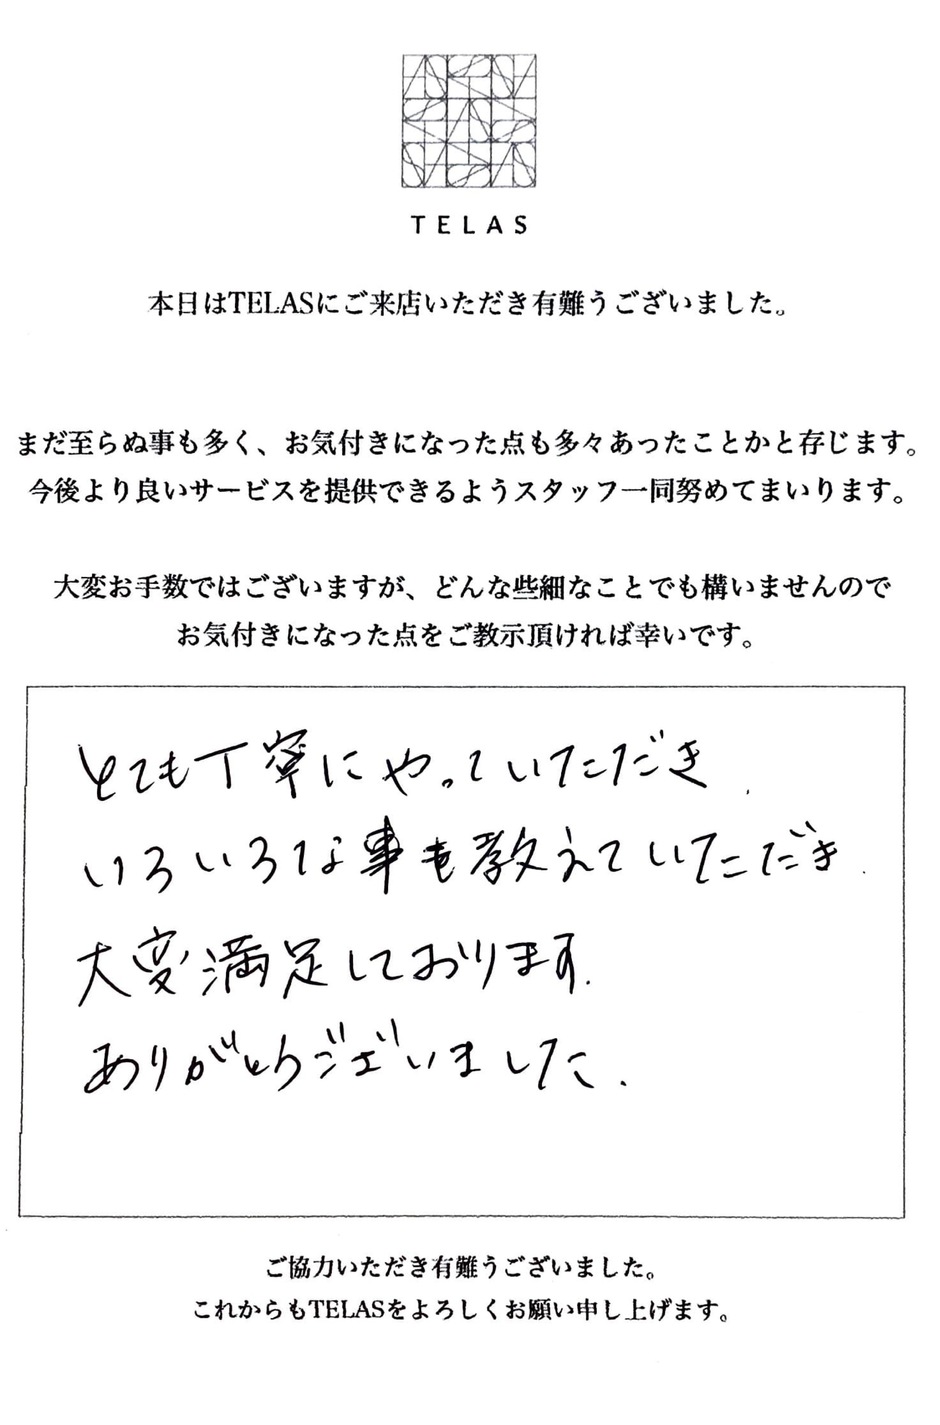 TELAS
本日はTELASにご来店いただき有難うございました。
まだ至らぬ事も多く、お気付きになった点も多々あったことかと存じます。
今後より良いサービスを提供できるようスタッフ一同努めてまいります。
大変お手数ではございますが、どんな些細なことでも構いませんので
お気付きになった点をご教示頂ければ幸いです。
とても丁寧にやっていただき、
いろいろな事も教えていただき、
大変満足しております。
ありがとうございました。
ご協力いただき有難うございました。
これからもTELASをよろしくお願い申し上げます。